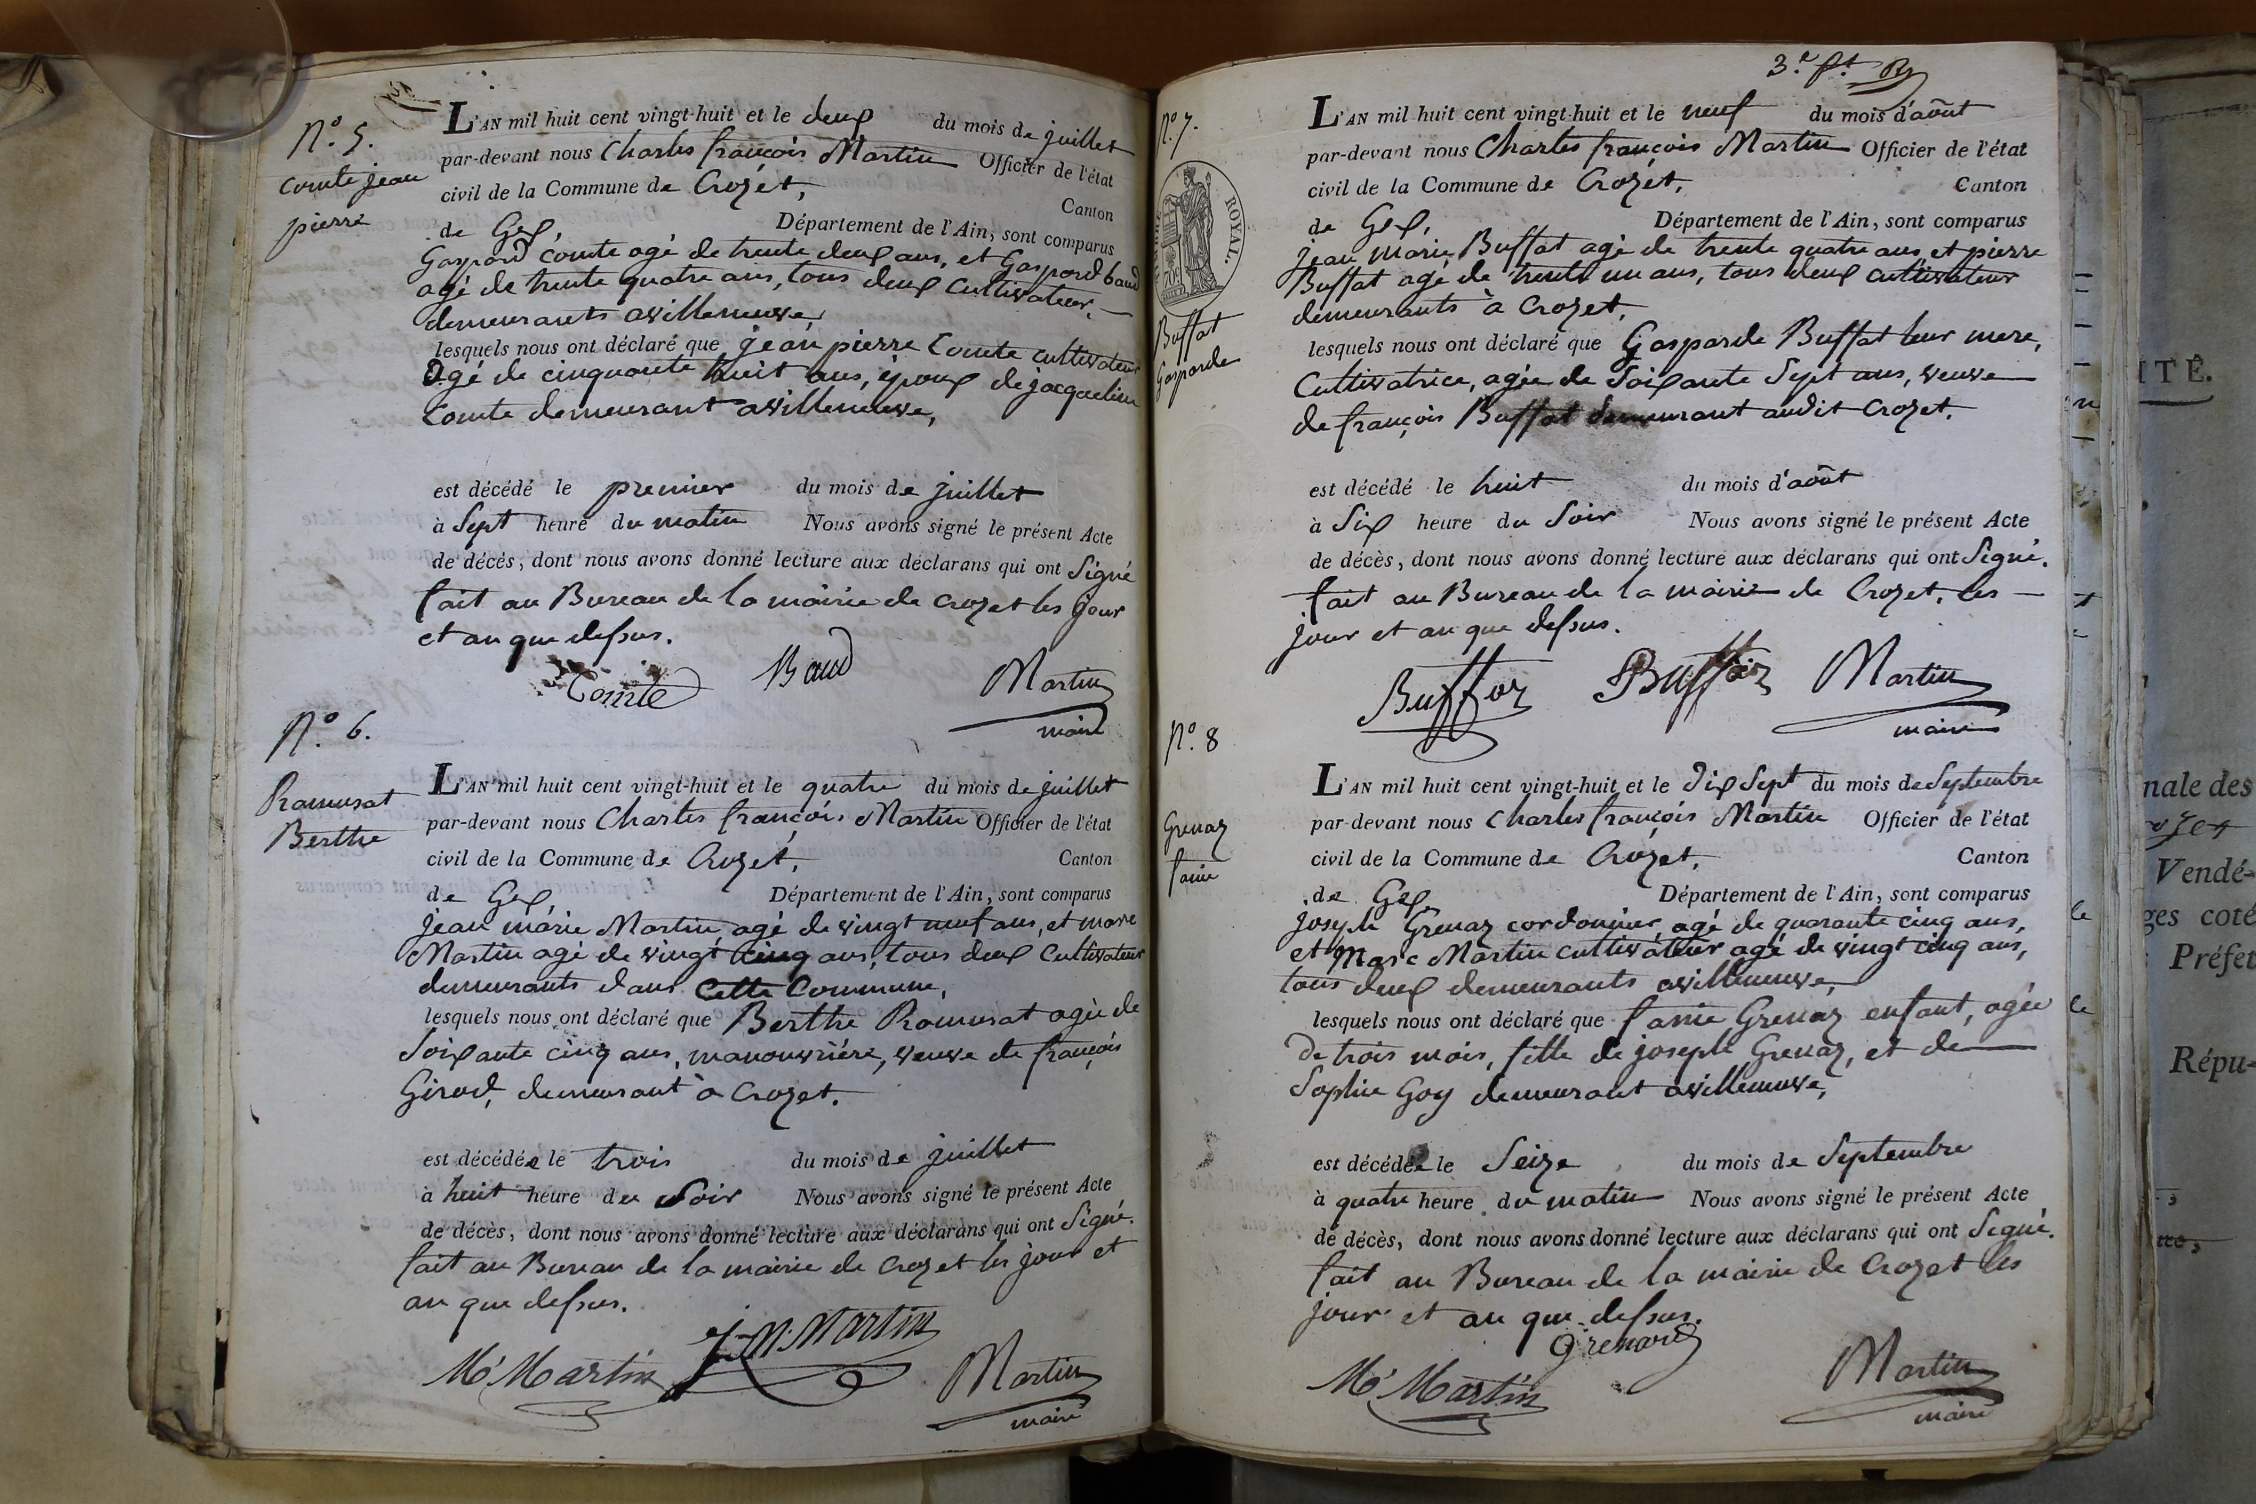 N.º 5.
Comte jean
pierre
L'AN mil huit cent vingt-huit et le deux du mois de juillet
par-devant nous Charles françois Martin Officier de l'état
civil de la Commune de Crozet, Canton
de Gex, Département de l'Ain, sont comparus
Gaspard Comte agé de trente deux ans, et Gaspard baud
agé de trente quatre ans, tous deux Cultivateur,
demeurants avilleneuve,
lesquels nous ont déclaré que jean pierre Comte cultivateur
agé de cinquante huit ans, époux de jacqueline
Comte demeurant avilleneuve,
est décédé le premier du mois de juillet
à Sept heure du matin Nous avons signé le présent Acte
de décés, dont nous avons donné lecture aux déclarans qui ont Signé
fait au Bureau de la mairie de Crozet les jour
et an que dessus.
Comte Baud Martin
maire
N.º 6.
Ramusat
Berthe
L'AN mil huit cent vingt-huit et le quatre du mois de juillet
par-devant nous Charles françois Martin Officier de l'état
civil de la Commune de Crozet, Canton
de Gex, Département de l'Ain, sont comparus
jean marie Martin agé de vingt neuf ans, et marc
Martin agé de vingt cinq ans, tous deux Cultivateur
demeurants dans cette Commune,
lesquels nous ont déclaré que Berthe Ramusat agée de
Soixante cinq ans, manouvrière, veuve de françois
Girod, demeurant à Crozet.
est décédée le trois du mois de juillet
à huit heure du Soir Nous avons signé le présent Acte
de décés, dont nous avons donné lecture aux déclarans qui ont Signé.
fait au Bureau de la mairie de Crozet les jour et
an que dessus.
Mc Martin J. M. Martin Martin
maire
3.e f.t
N.º 7.
ROYAL.
Buffat
Gasparde
L'AN mil huit cent vingt-huit et le neuf du mois d'août
par-devant nous Charles françois Martin Officier de l'état
civil de la Commune de Crozet, Canton
de Gex, Département de l'Ain, sont comparus
jean marie Buffat agé de trente quatre ans et pierre
Buffat agé de trente un ans, tous deux cultivateur
demeurants à Crozet,
lesquels nous ont déclaré que Gasparde Buffat leur mere,
Cultivatrice, agée de Soixante Sept ans, veuve
de françois Buffat demeurant audit Crozet.
est décédé le huit du mois d'août
à Six heure du Soir Nous avons signé le présent Acte
de décès, dont nous avons donné lecture aux déclarans qui ont Signé.
fait au Bureau de la mairie de Crozet, les
jour et an que dessus.
Buffaz Buffaz Martin
maire
N.º 8
Grenaz
fanie
L'AN mil huit cent vingt-huit et le Dix Sept du mois de Septembre
par-devant nous Charles françois Martin Officier de l'état
civil de la Commune de Crozet, Canton
de Gex, Département de l'Ain, sont comparus
joseph Grenaz cordonnier, agé de quarante cinq ans,
et Marc Martin cultivateur agé de vingt cinq ans,
tous deux demeurants avilleneuve,
lesquels nous ont déclaré que fanie Grenaz enfant, agée
De trois mois, fille de joseph Grenaz, et de
Sophie Goy demeurant avilleneuve,
est décédée le Seize du mois de Septembre
à quatre heure du matin Nous avons signé le présent Acte
de décès, dont nous avons donné lecture aux déclarans qui ont Signé.
fait au Bureau de la mairie de Crozet les
jour et an que dessus.
Mc Martin Grenaz Martin
maire
ITÉ.
nale des
Vendé-
ges coté
Préfet
Répu-